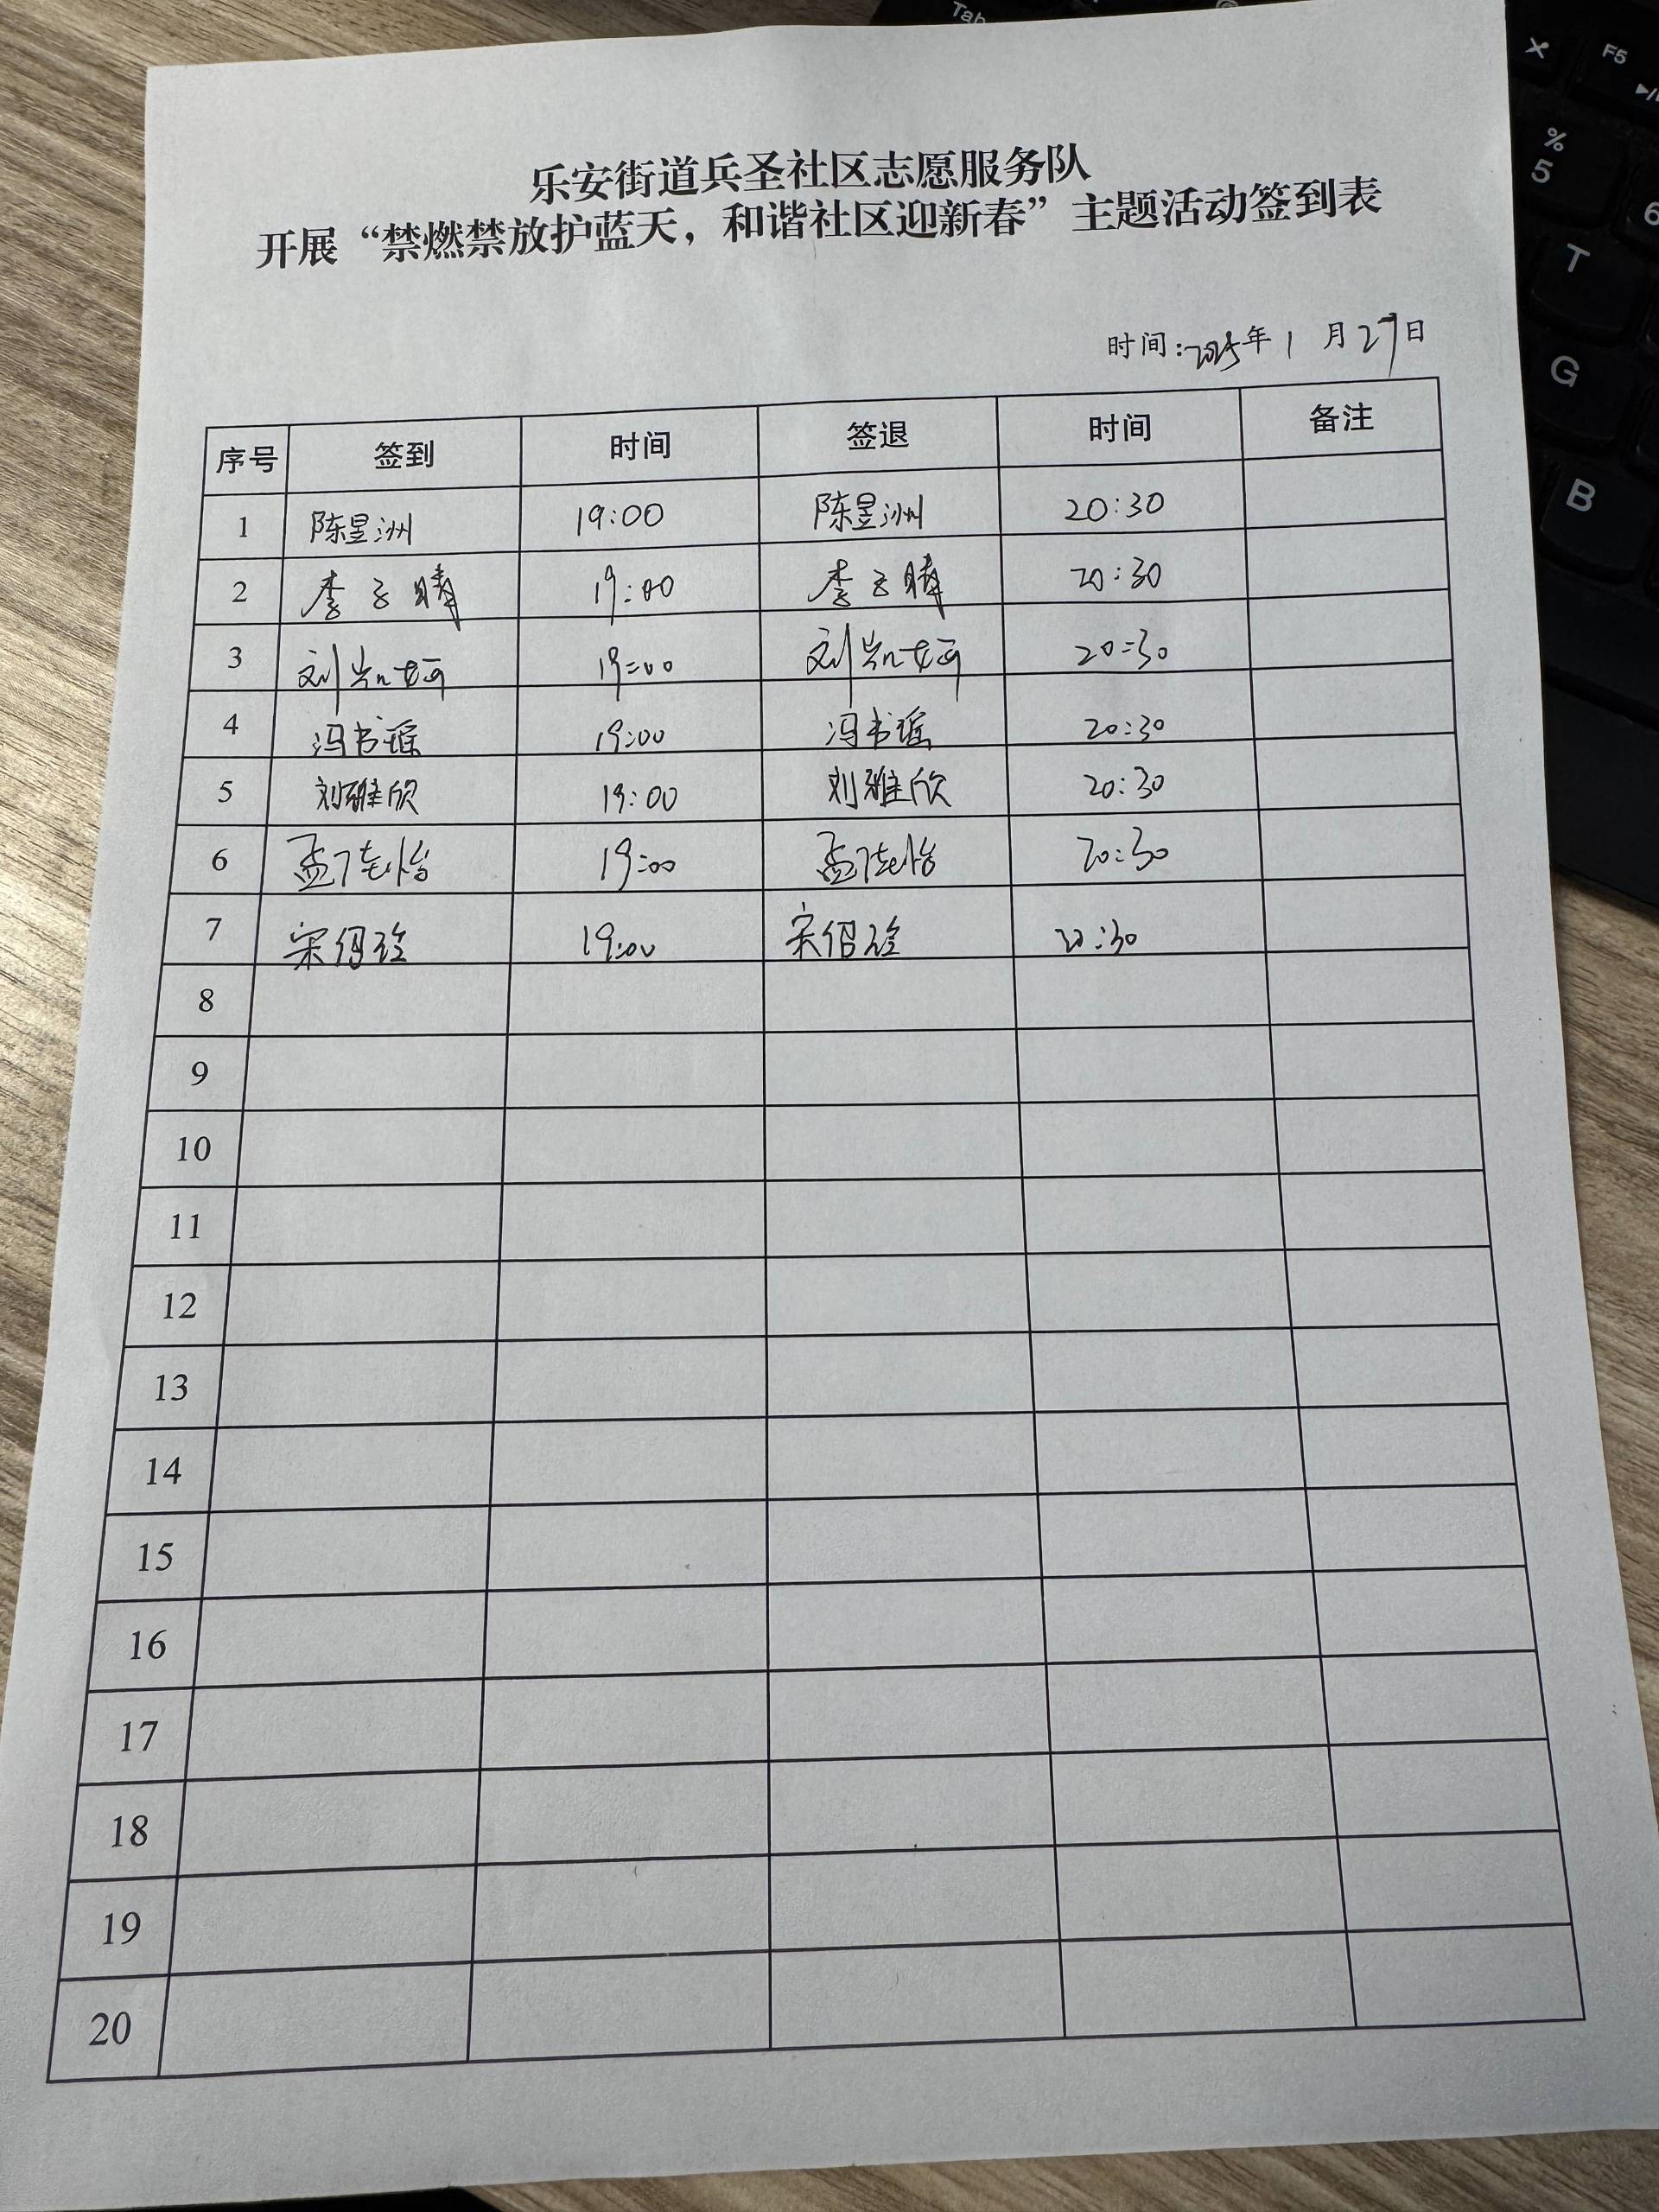 乐安街道兵圣社区志愿服务队
开展“禁燃禁放护蓝天，和谐社区迎新春”主题活动签到表
时间:2025年1月27日
序号 签到 时间 签退 时间 备注
1 陈昱洲 19:00 陈昱洲 20:30
2 李子晴 19:00 李子晴 20:30
3 刘凯妸 19:00 刘凯妸 20:30
4 冯书瑶 19:00 冯书瑶 20:30
5 刘雅欣 19:00 刘雅欣 20:30
6 孟佳怡 19:00 孟佳怡 20:30
7 宋绍 19:00 宋绍 20:30
8
9
10
11
12
13
14
15
16
17
18
19
20
Tab
F5
%
5
6
T
G
B